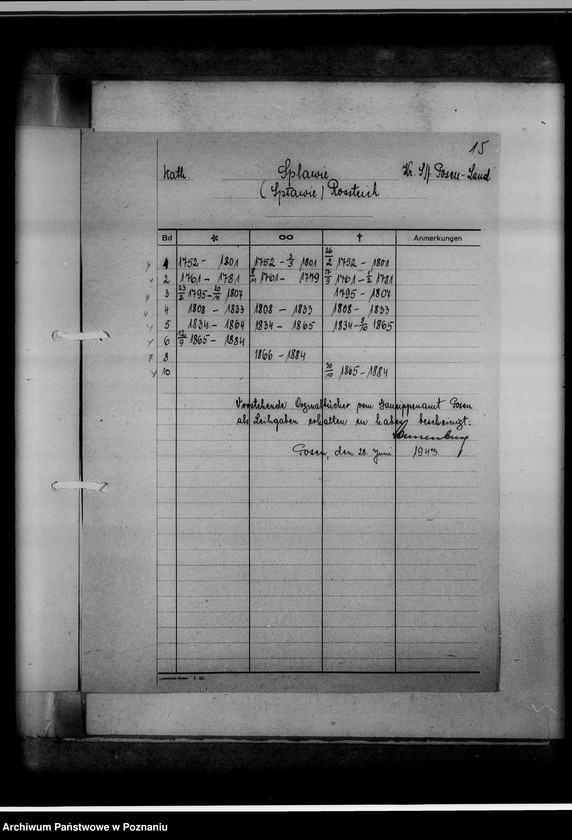 15
Kath. Splawie Kr. Posen-Land
(Spławie) Rossteich
Bd * ∞ † Anmerkungen
1 1752 - 1801 1752 - 3/5 1801 26/2 1752 - 1801
2 1761 - 1781 8/11 1761 - 1779 17/9 1761 - 1/2 1781
3 23/2 1795 - 20/10 1807 1795 - 1807
4 1808 - 1833 1808 - 1833 1808 - 1833
5 1834 - 1864 1834 - 1865 1834 - 8/10 1865
6 1865 - 1884
8 1866 - 1884
10 30/10 1865 - 1884
Vorstehende Originalbücher vom Gausippenamt Posen
als Leihgaben erhalten zu haben bescheinigt:
Posen, den 28. Juni 1943
Archiwum Państwowe w Poznaniu